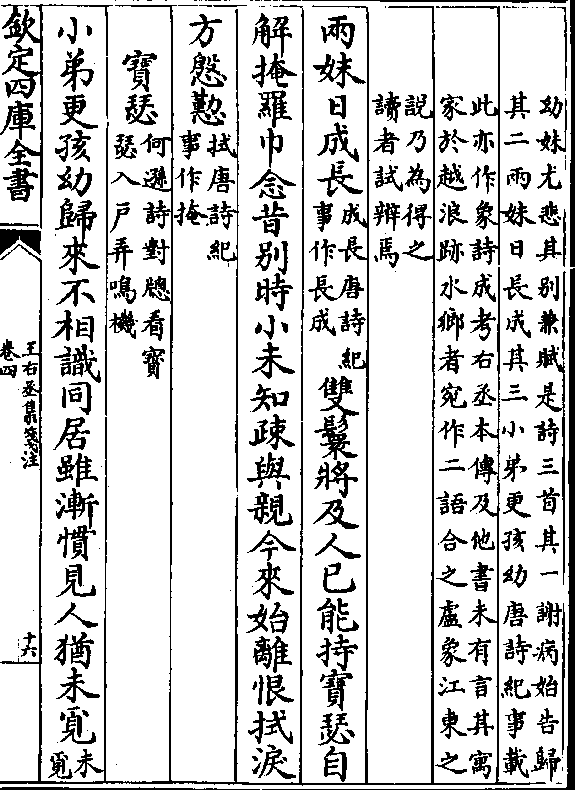 幼妹尤悲其别兼賦是詩三首其一謝病始告歸
其二兩妹日長成其三小弟更孩幼唐詩紀事載
此亦作象詩成考右丞本傳及他書未有言其寓
家於越浪跡水鄉者宛作二語合之盧象江東之
說乃為得之
讀者試辨焉
兩妹日成長成長唐詩紀事作長成雙鬟將及人已能持寶瑟自
解掩羅巾念昔别時小未知疎與親今來始離恨拭淚
方慇懃拭唐詩紀事作掩
寶瑟何遜詩對牕看寶瑟入户弄鳴機
小弟更孩幼歸來不相識同居雖漸慣見人猶未覓未覓
欽定四庫全書
王右丞集箋注
卷四
十六